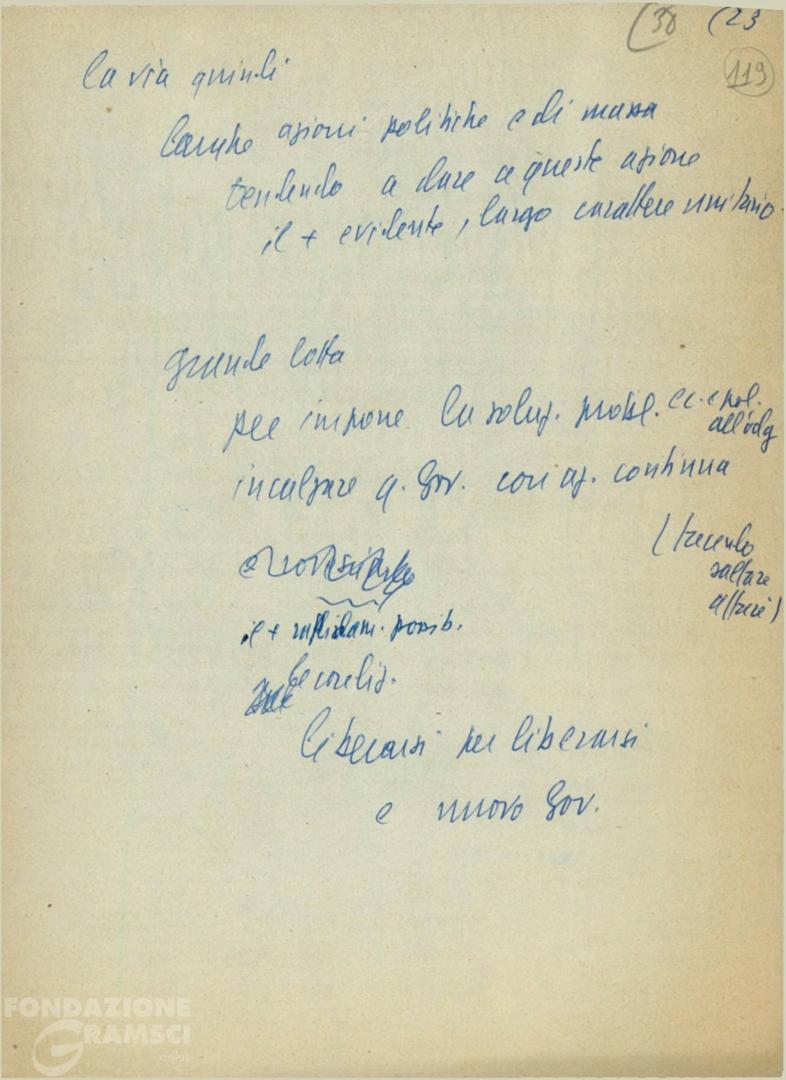 (30 (23
119
la via quindi
larghe azioni politiche e di massa
tendendo a dare a queste azione
il + evidente, largo carattere unitario.
grande lotta
per imporre la soluz. probl. ec. e pol.
all'odg
incalzare q. Gov. con az. continua
(facendo
saltare
il + rapidam. possib.
le coaliz.
liberarsi per liberarsi
e nuovo Gov.
FONDAZIONE
GRAMSCI
onlus